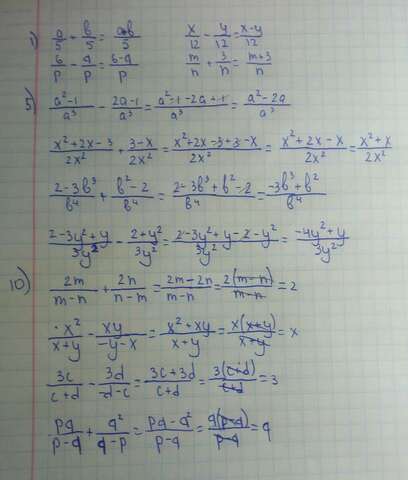 1) a/5 + b/5 = a+b/5   x/12 - y/12 = x-y/12
6/p - a/p = 6-a/p   m/n + 3/n = m+3/n
5) a²-1/a³ - 2a-1/a³ = a²-1-2a+1/a³ = a²-2a/a³
x²+2x-3/2x² + 3-x/2x² = x²+2x-3+3-x/2x² = x²+2x-x/2x² = x²+x/2x²
2-3b³/b⁴ + b²-2/b⁴ = 2-3b³+b²-2/b⁴ = -3b³+b²/b⁴
2-3y²+y/3y² - 2+y²/3y² = 2-3y²+y-2-y²/3y² = -4y²+y/3y²
10) 2m/m-n + 2n/n-m = 2m-2n/m-n = 2(m-n)/m-n = 2
x²/x+y - xy/-y-x = x²+xy/x+y = x(x+y)/x+y = x
3c/c+d - 3d/-d-c = 3c+3d/c+d = 3(c+d)/c+d = 3
pq/p-q + q²/q-p = pq-q²/p-q = q(p-q)/p-q = q